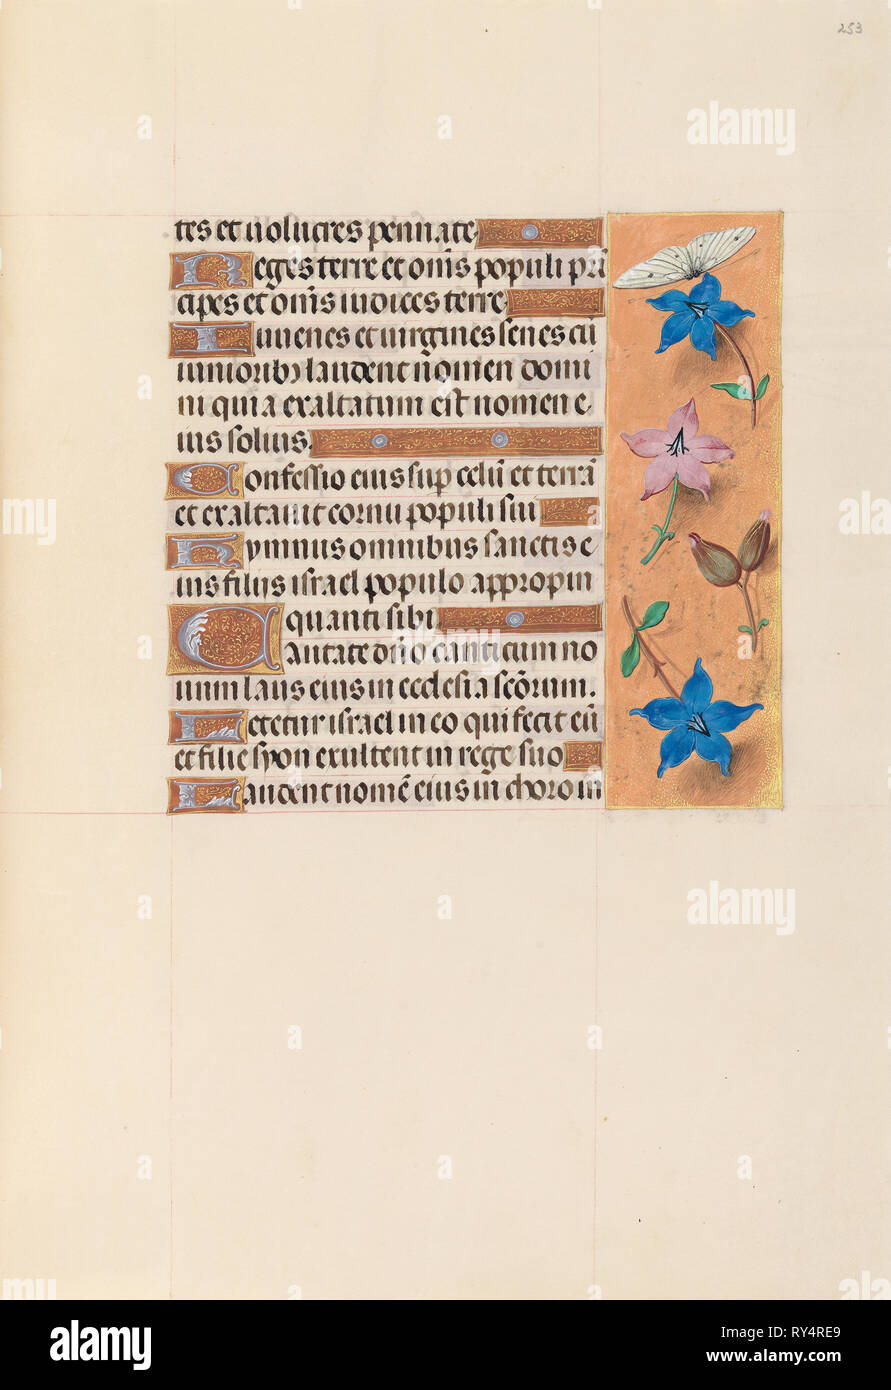 253
tes et uolucres pennate
Reges terre et om̄s populi prī
cipes et om̄s iudices terre
Iuuenes et uirgines senes cū
iunioribꝫ laudent nomen domi
ni quia exaltatum est nomen e
ius solius.
Confessio eius sup celū et terrā
et exaltauit cornu populi sui
Hymnus omnibus sanctis e
ius filiis israel populo appropin
quanti sibi
Cantate dn̄o canticum no
uum laus eius in ecclesia sc̄orum.
Letetur israel in eo qui fecit eū
et filie syon exultent in rege suo
Laudent nomē eius in choro in
alamy
Image ID: RY4RE9
www.alamy.com